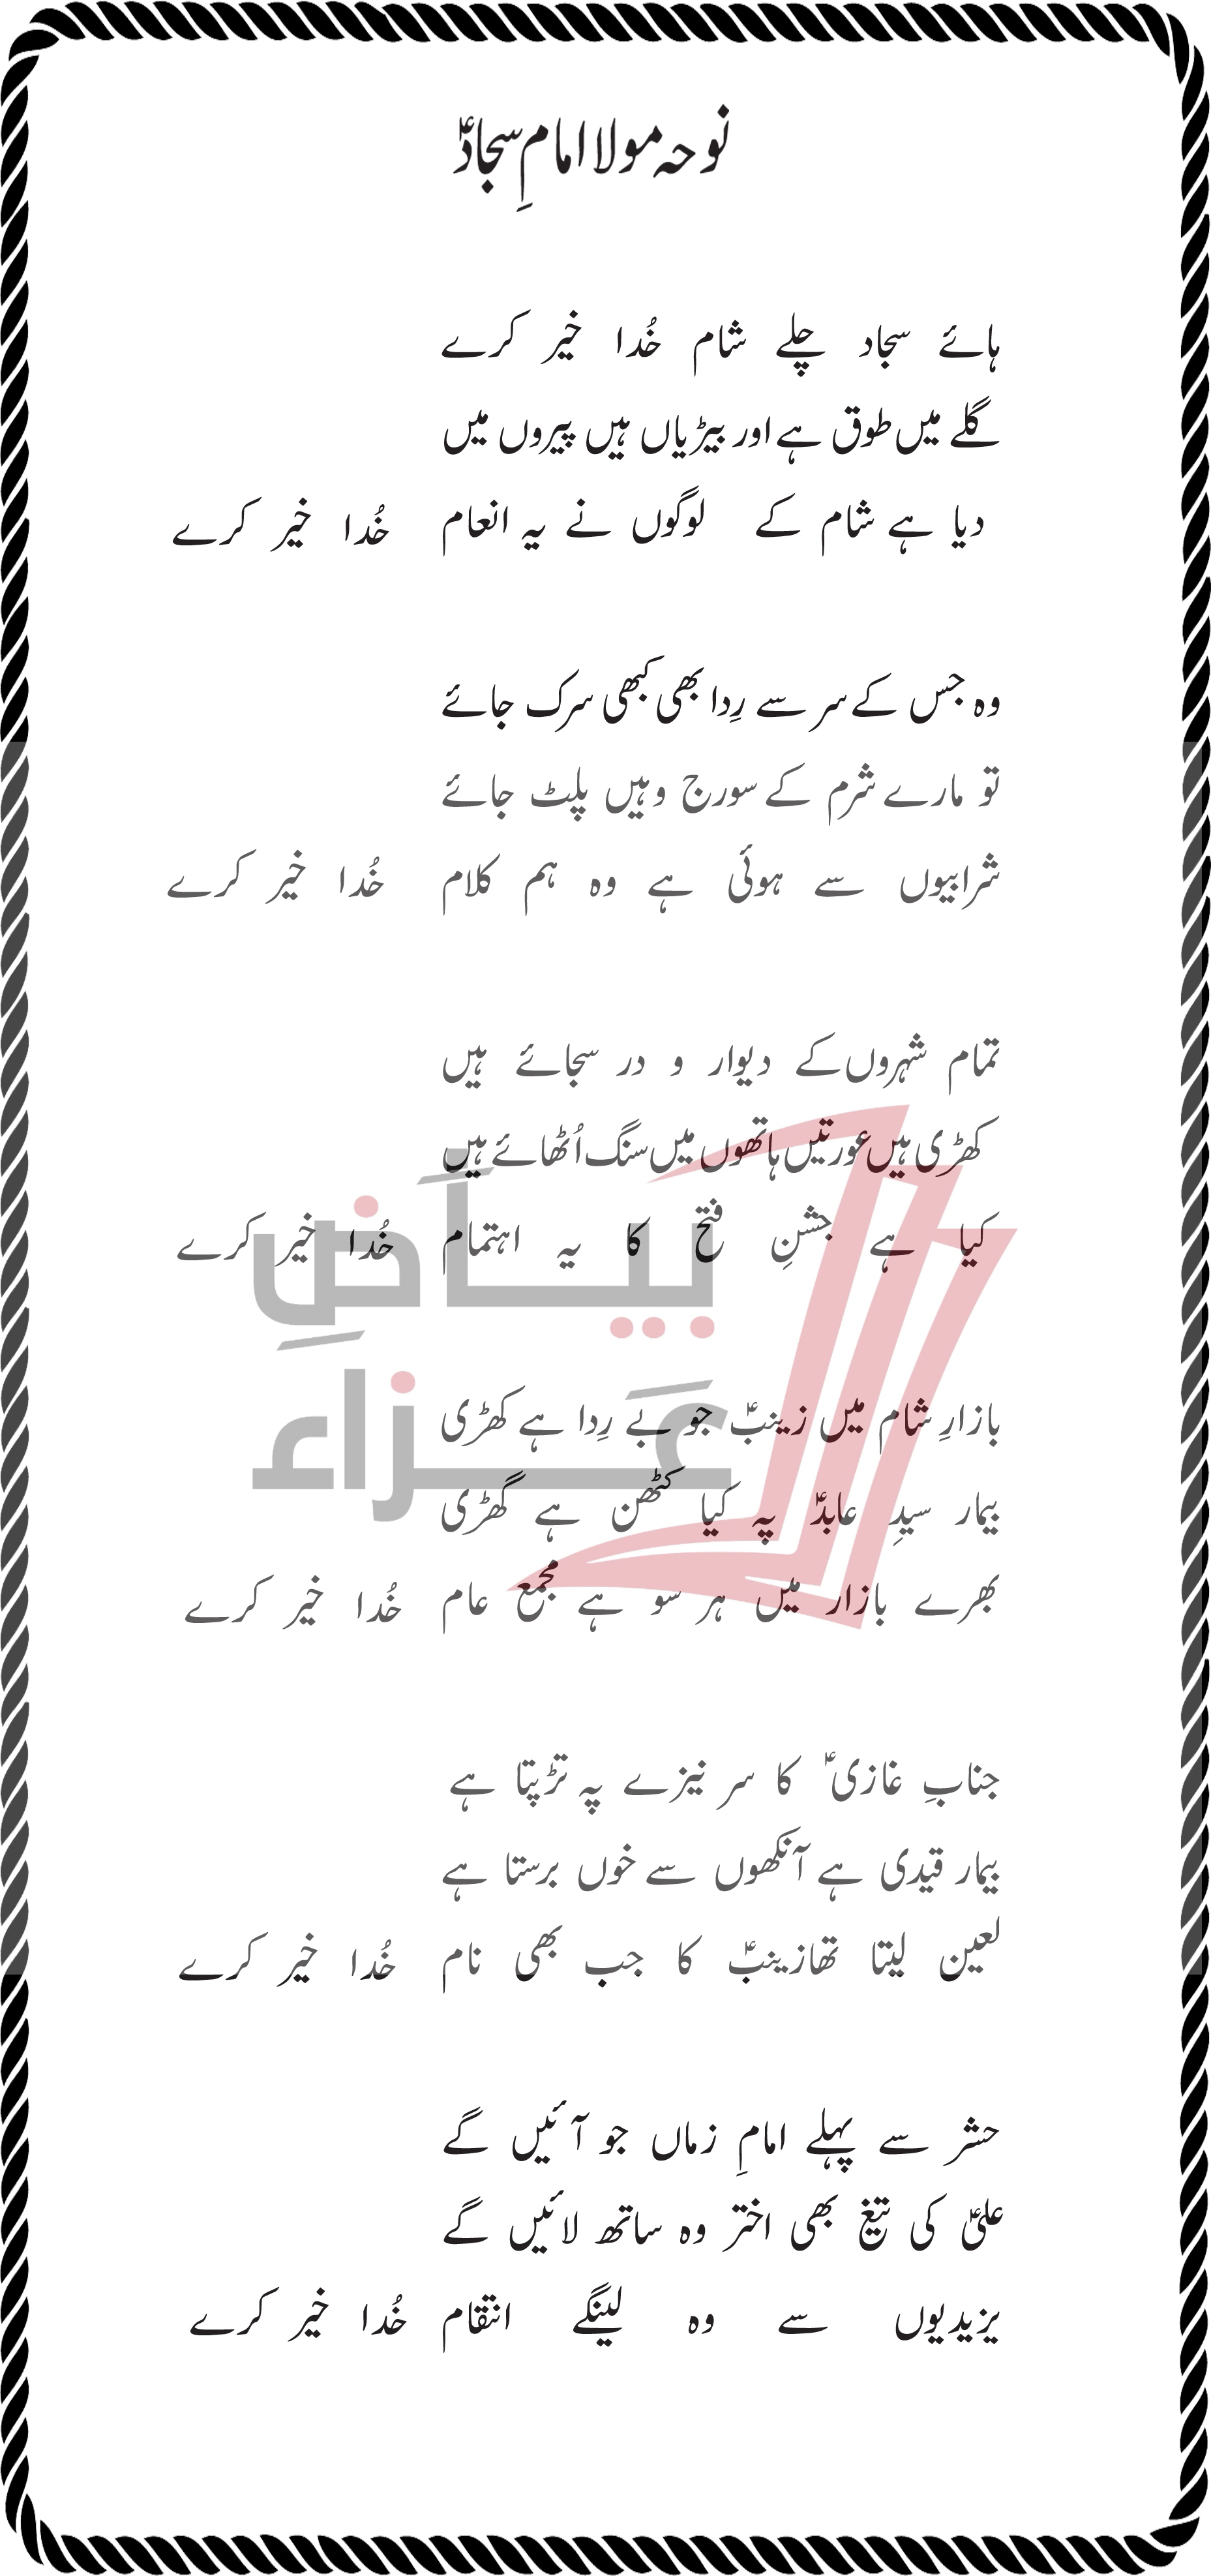 نوحہ مولا امامِ سجادؑ
ہائے سجاد چلے شام خُدا خیر کرے
گلے میں طوق ہے اور بیڑیاں ہیں پیروں میں
دیا ہے شام کے لوگوں نے یہ انعام خُدا خیر کرے
وہ جس کے سر سے رِدا بھی کبھی سرک جائے
تو مارے شرم کے سورج وہیں پلٹ جائے
شرابیوں سے ہوئی ہے وہ ہم کلام خُدا خیر کرے
تمام شہروں کے دیوار و در سجائے ہیں
کھڑی ہیں عورتیں ہاتھوں میں سنگ اُٹھائے ہیں
کیا ہے جشنِ فتح کا یہ اہتمام خُدا خیر کرے
بیاَضِ
عَزاء
بازارِ شام میں زینبؑ جو بے رِدا ہے کھڑی
بیمار سیدِ عابدؑ پہ کیا کٹھن ہے گھڑی
بھرے بازار میں ہر سو ہے مجمع عام خُدا خیر کرے
جنابِ غازیؑ کا سر نیزے پہ تڑپتا ہے
بیمار قیدی ہے آنکھوں سے خوں برستا ہے
لعین لیتا تھا زینبؑ کا جب بھی نام خُدا خیر کرے
حشر سے پہلے امامِ زماں جو آئیں گے
علیؑ کی تیغ بھی اختر وہ ساتھ لائیں گے
یزیدیوں سے وہ لینگے انتقام خُدا خیر کرے